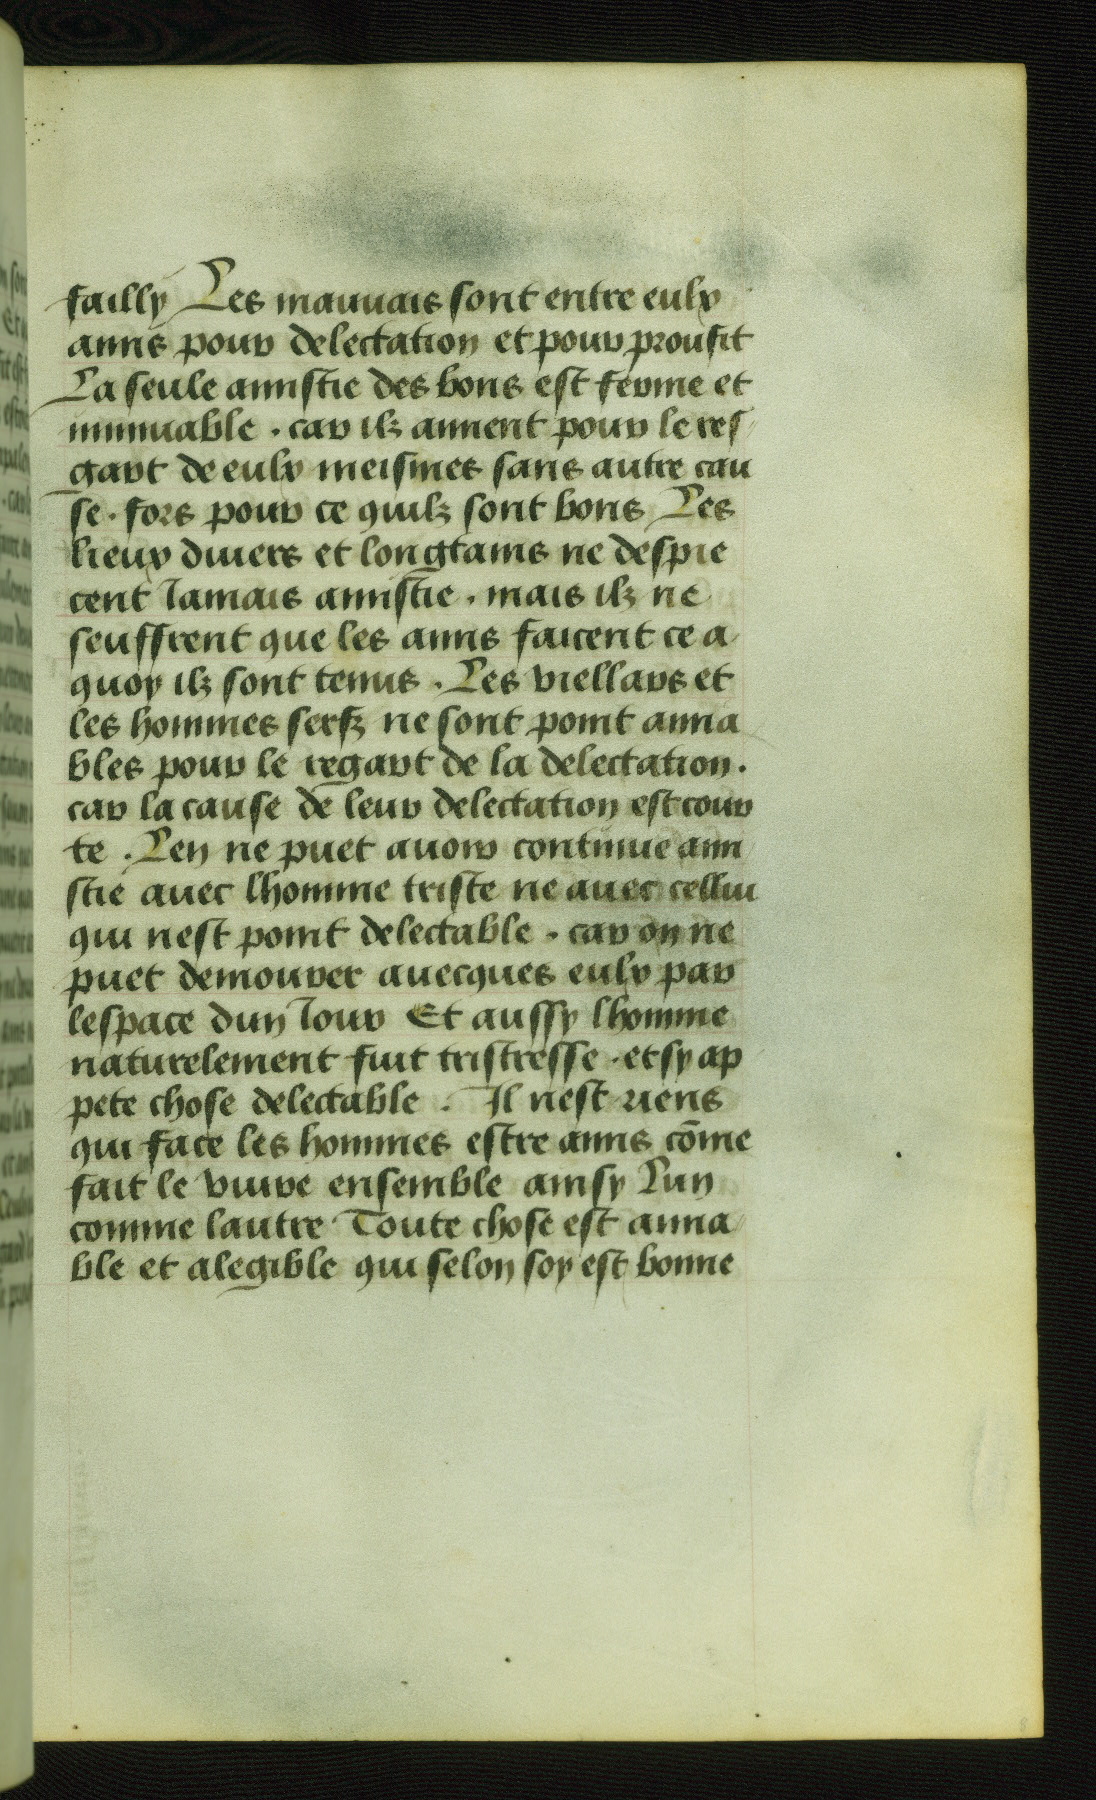 failly Les mauuais sont entre eulx
amis pour delectation et pour proufit
La seule amistie des bons est ferme et
inmuable . car ilz aiment pour le res
gart de eulx meismes sans autre cau
se . fors pour ce quilz sont bons Les
lieux diuers et longtams ne despie
cent Jamais amistie . mais ilz ne
seuffrent que les amis faicent ce a
quoy ilz sont tenus . Les viellars et
les hommes serfz ne sont point amia
bles pour le regart de la delectation .
car la cause de leur delectation est cour
te . Len ne puet auoir continue ami
stie auec lhomme triste ne auec cellui
qui nest point delectable . car on ne
puet demourer auecques eulx par
lespace dun Jour Et aussy lhomme
naturelement fuit tristresse . et sy ap
pete chose delectable . Il nest riens
qui face les hommes estre amis cōme
fait le viure ensemble ainsy Lun
comme lautre Toute chose est amia
ble et alegible qui selon soy est bonne